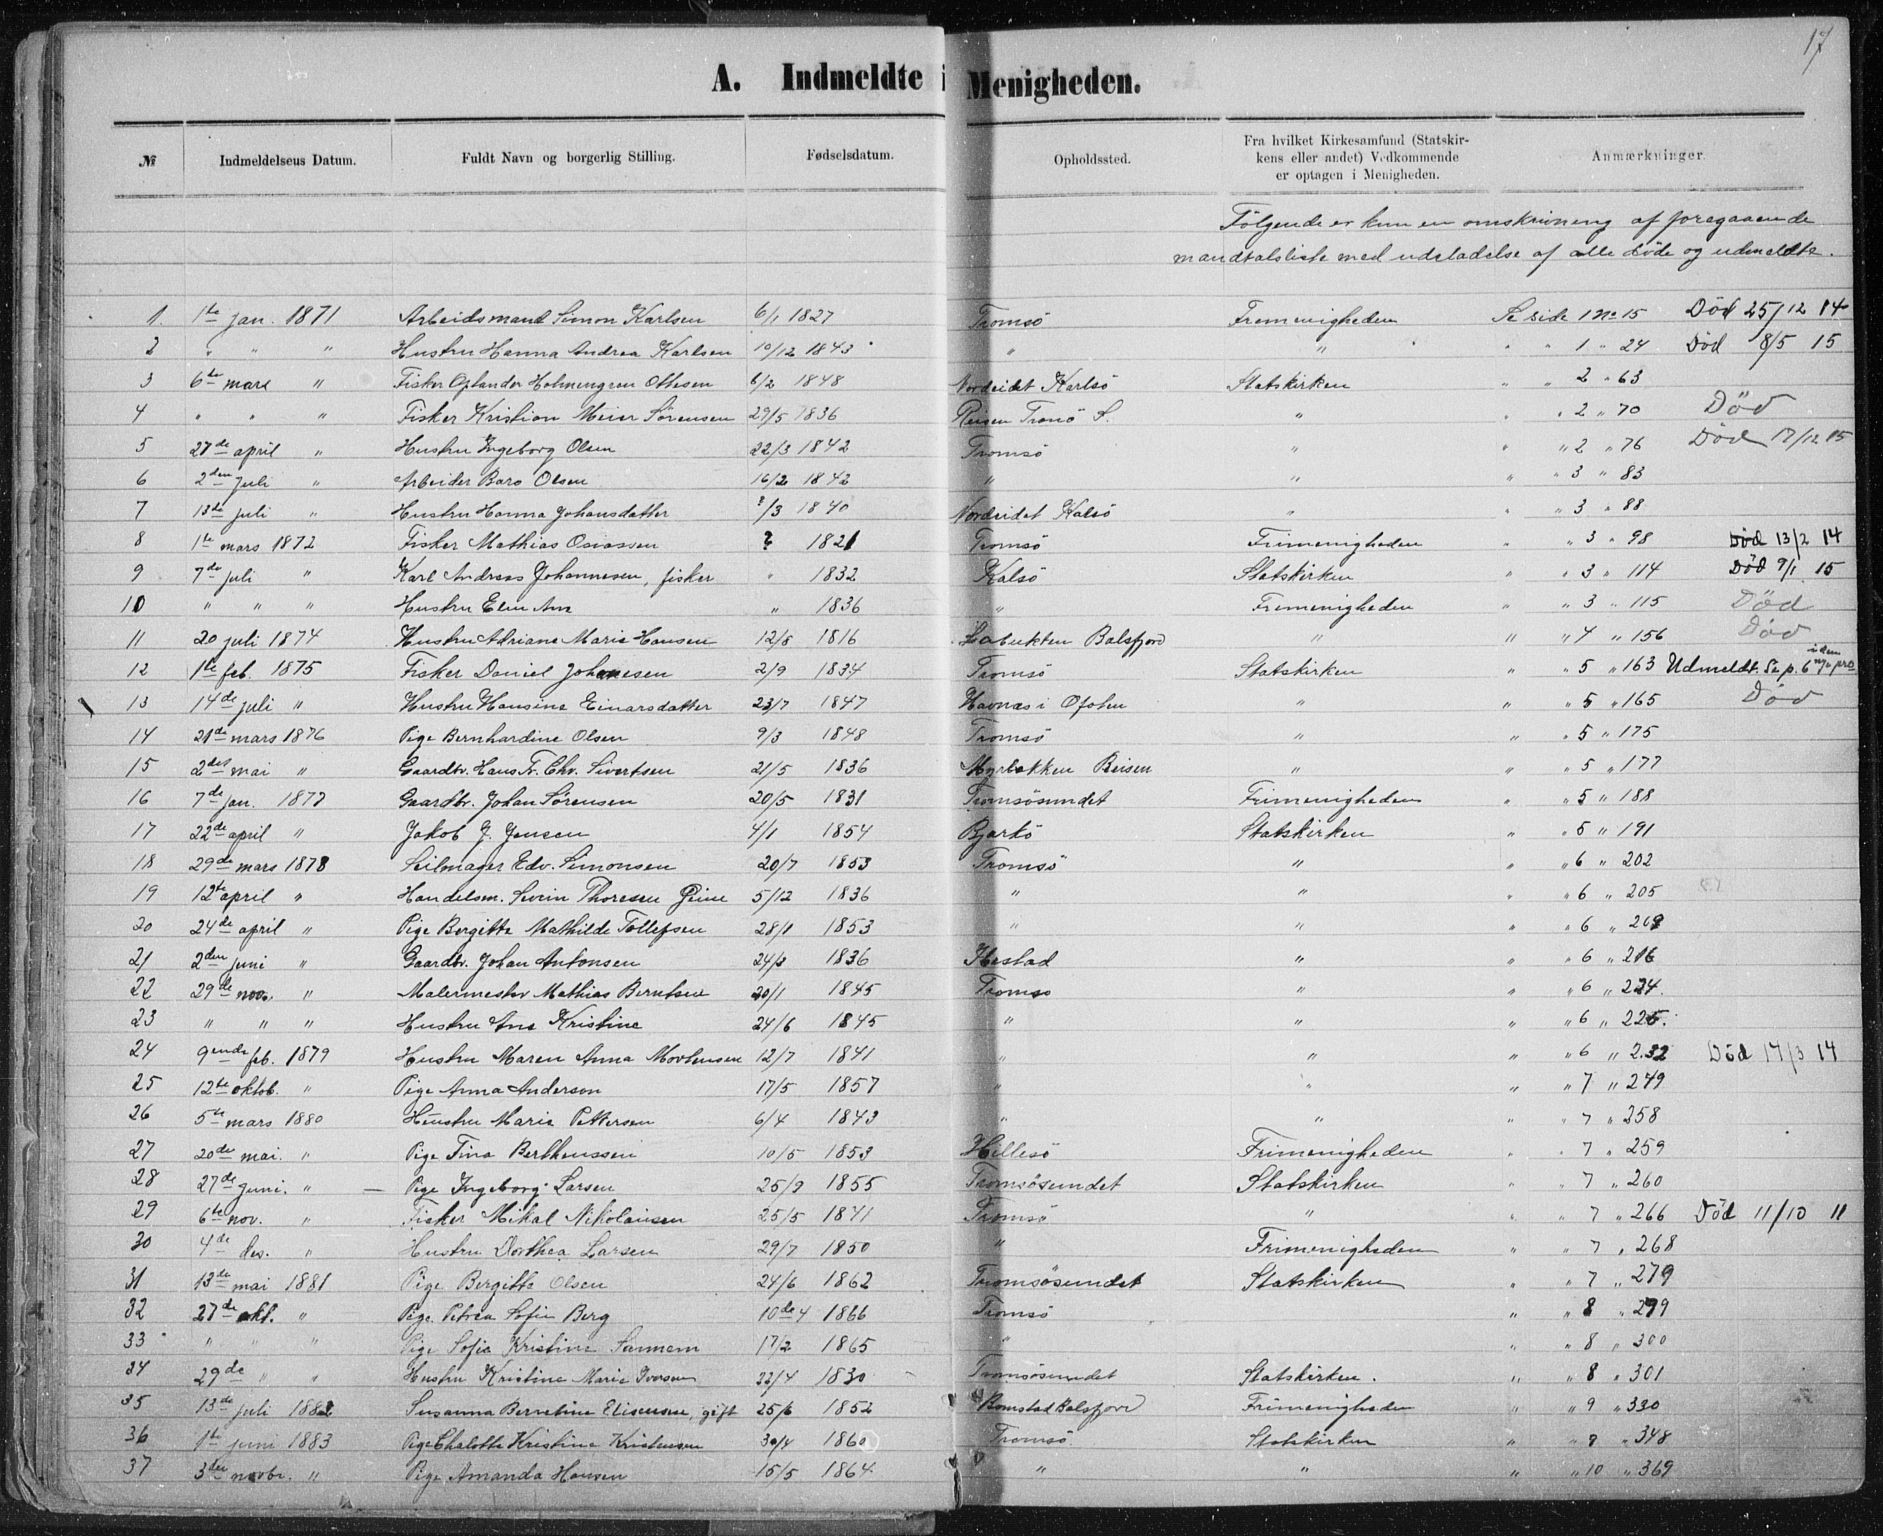 17
A. Indmeldte i Menigheden.
№ Indmeldelseus Datum. Fuldt Navn og borgerlig Stilling. Fødselsdatum. Opholdssted. Fra hvilket Kirkesamfund (Statskirkens eller andet) Vedkommende er optagen i Menigheden. Anmærkninger.
Følgende er kun en omskrivning af foregaaende
mandtalsliste med udeladelse af alle døde og udmeldte.
1. 1ste jan. 1871 Arbeidsmand Simon Karlsen 6/1 1827 Tromsö Fremenigheden Se side 1 no 15 Död 25/12 14
2 " " " Hustru Hanna Andrea Karlsen 10/12 1843 " " " " 1 " 24 Död 8/5 15
3 6te mars " Fisker Ottesen 6/2 1848 Nordeidet Karlsö Statskirken " " 2 " 63
4 " " " Fisker Kristian Meier Sörensen 29/5 1836 Reisen Tromö S. " " " 2 " 70 Död
5 27de april " Hustru Ingeborg Olsen 22/3 1842 Tromsö " " " 2 " 76 Död 17/12 15
6 2den juli " Arbeider Baro Olsen 16/2 1842 " " " " 3 " 83
7 13de juli " Hustru Hanna Johansdatter ?/3 1840 Nordeidet Kalsö " " " 3 " 88
8 1te mars 1872 Fisker Mathias Osiassen ? 1821 Tromsö Frimenigheden " " 3 " 98 Död 13/2 14
9 7de juli " Karl Andreas Johannesen, fisker " 1832 Kalsö Statskirken " " 3 " 114 Död 9/1 15
10 " " " Hustru Elen Ane " 1836 " Fremenigheden " " 3 " 115 Död
11 20 juli 1874 Hustru Adriane Marie Hansen 12/8 1816 Balsfjord " " " 4 " 156 Död
12 1te feb. 1875 Fisker Daniel Johanesen 2/9 1834 Tromsö Statskirken " " 5 " 163 Udmeldt. Se p. 6
13 14de juli " Hustru Hansine Einarsdatter 23/7 1847 Havnæs i Ofoten " " " 5 " 165 Död
14 21de mars 1876 Pige Bernhardine Olsen 9/3 1848 Tromsö " " " 5 " 175
15 2det mai " Gaardbr. Hans Fr. Chr. Sivertsen 21/5 1836 Myrbakken Reisen " " " 5 " 177
16 7de jan. 1877 Gaardbr. Johan Sörensen 20/5 1831 Tromsösundet Frimenigheden " " 5 " 188
17 22de april " Jakob J. Jensen 4/1 1854 Bjarkö Statskirken " " 5 " 191
18 29de mars 1878 Seilmager Edv. Simonsen 20/7 1853 Tromsö " " " 6 " 202
19 12te april " Handelsm. Sverin Thoresen Greine 5/12 1836 " " " " 6 " 205
20 24de april " Pige Bergitte Mathilde Tollefsen 28/1 1853 " " " " 6 " 209
21 2den juni " Gaardbr. Johan Antonsen 24/3 1836 Ibestad " " " 6 " 216
22 29de nov. " Malermester Mathias Berntsen 20/1 1845 Tromsö " " " 6 " 224.
23 " " " Hustru Ane Kristine 24/6 1845 " " " " 6 " 225.
24 9ende feb. 1879 Hustru Maren Anna Mortensen 12/7 1841 " " " " 6 " 232 Död 17/3 14
25 12te oktob. " Pige Anna Anderson 17/5 1857 " " " " 7 " 249
26 5te mars 1880 Hustru Marie Pettersen 6/4 1843 " " " " 7 " 258
27 20de mai. " Pige Tina Bertheussen 10/5 1853 Hillesö Frimenigheden " " 7 " 259
28 27de juni. " — Pige Ingeborg Larsen 25/9 1855 Tromsösundet Statskirken " " 7 " 260
29 6te nov. " Fisker Mikal Nikolaisen 25/5 1841 Tromsö " " " 7 " 266 Död 11/10 11
30 4de des. " Hustru Dorthea Larsen 29/7 1850 " Frimenigheden " " 7 " 268
31 13de mai 1881 Pige Bergitte Olsen 24/6 1862 Tromsösundet Statskirken " " 7 " 279
32 27de okt. " Pige Petrea Sofie Berg 10de 4 1866 Tromsö " " 8 " 299
33 " " " Pige Sofie Kristine Sannem 17/2 1865 " " " 8 " 300
34 29de " " Hustru Kristine Marie Iversen 22/4 1830 Tromsösundet Statskirken. " " 8 " 301
35 13de juli 1882 Susanna Berretine Elisensen, gift 25/6 1852 Balsfjord Frimenigheden " " 9 " 330
36 1te juni 1883 Pige Chalotte Kristine Kristensen 30/4 1860 Tromsö Statskirken " " 9 " 348
37 3die novbr. " Pige Amanda Hansen 15/5 1864 " " " " 10 " 369